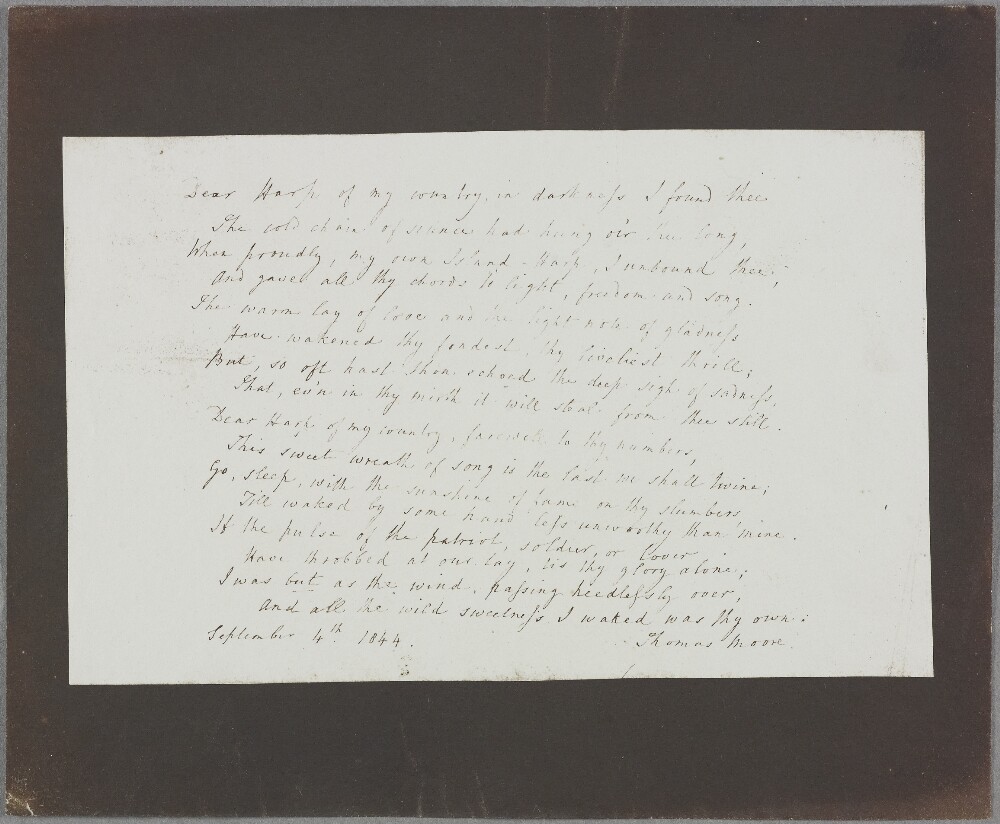 Dear Harp of my country, in darkness I found thee
The cold chain of silence had hung o'er thee long,
When proudly, my own Island-Harp, I unbound thee;
And gave all thy chords to light, freedom and song.
The warm lay of love and the light note of gladness
Have wakened thy fondest thy liveliest thrill;
But, so oft hast thou echoed the deep sigh of sadness,
That, ev'n in thy mirth it will steal from thee still.
Dear Harp of my country, farewell to thy numbers,
This sweet wreath of song is the last we shall twine;
Go, sleep, with the sunshine of fame on thy slumbers
Till waked by some hand less unworthy than mine.
If the pulse of the patriot, soldier, or lover
Have throbbed at our lay, 'tis thy glory alone;
I was but as the wind, passing heedlessly over,
And all the wild sweetness I waked was thy own:
September 4th 1844.
Thomas Moore.